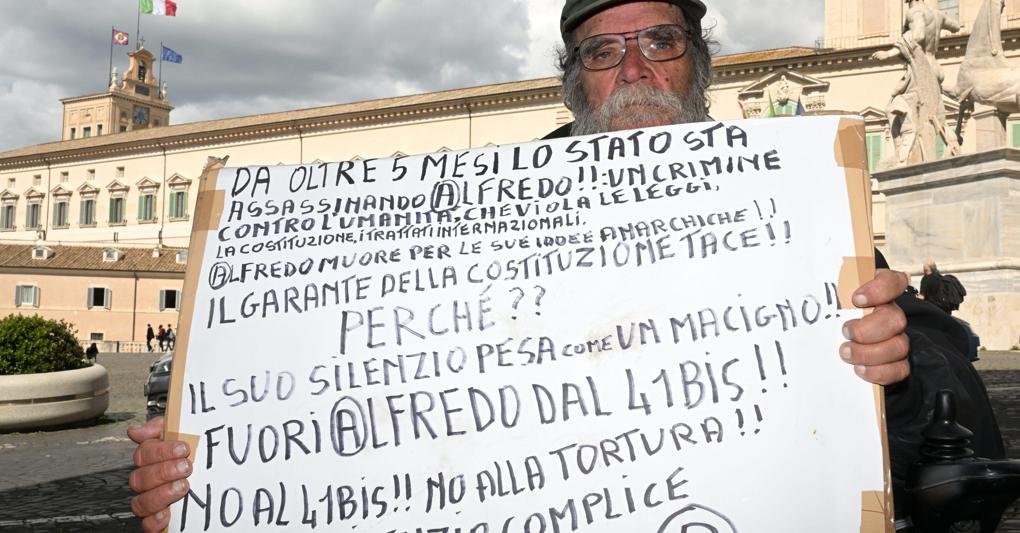 DA OLTRE 5 MESI LO STATO STA
ASSASSINANDO ⒶLFREDO!!:UN CRIMINE
CONTRO L'UMANITÀ, CHE VIOLA LE LEGGI,
LA COSTITUZIONE, I TRATTATI INTERNAZIONALI.
ⒶLFREDO MUORE PER LE SUE IDEE ANARCHICHE!!
IL GARANTE DELLA COSTITUZIONE TACE!!
PERCHÉ??
IL SUO SILENZIO PESA COME UN MACIGNO!!
FUORI ⒶLFREDO DAL 41BIS!!
NO AL 41BIS!! NO ALLA TORTURA!!
COMPLICE